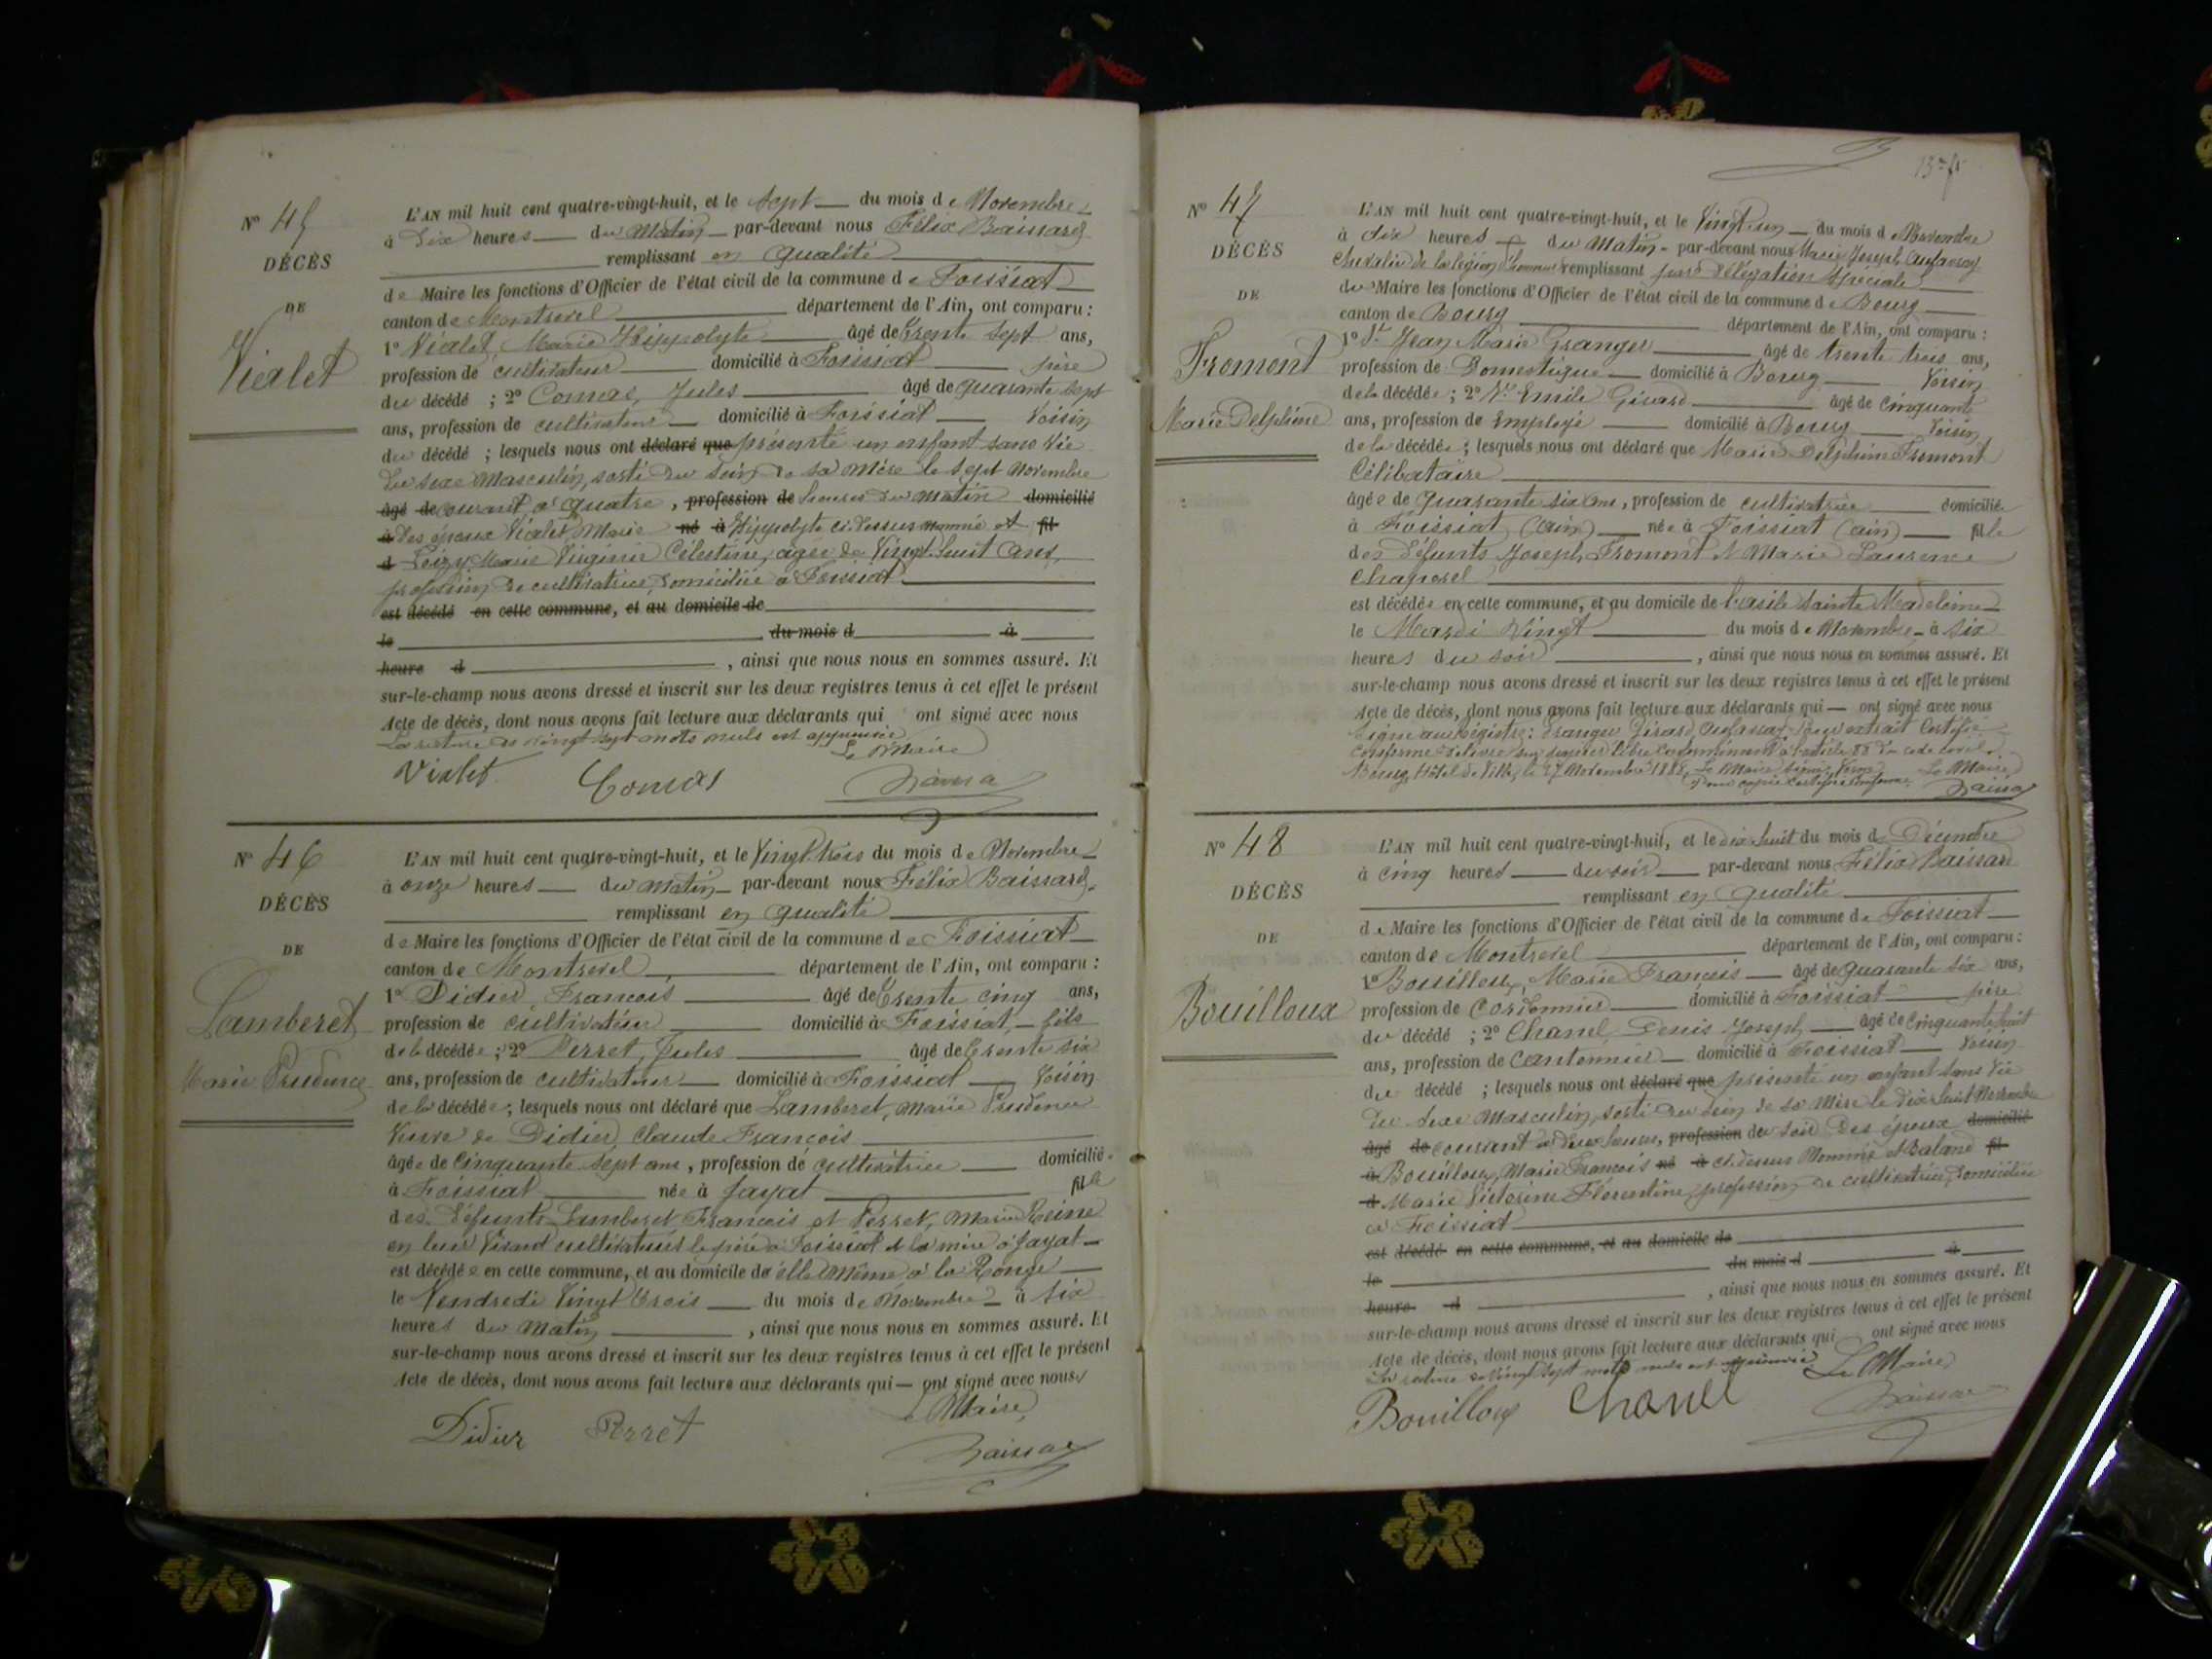 N° 45
DÉCÈS
DE
Vialet
L'AN mil huit cent quatre-vingt-huit, et le Sept du mois de Novembre
à Dix heures du Matin par-devant nous Félix Baissard
remplissant en qualité
de Maire les fonctions d'Officier de l'état civil de la commune de Foissiat
canton de Montrevel département de l'Ain, ont comparu :
1° Vialet, Marie Hippolyte âgé de Trente Sept ans,
profession de cultivateur domicilié à Foissiat père
du décédé ; 2° Comas, Jules âgé de quarante sept
ans, profession de cultivateur domicilié à Foissiat Voisin
du décédé ; lesquels nous ont déclaré que présenté un enfant sans Vie
du sexe Masculin, sorti du Sein de sa mère le sept Novembre
âgé de courant, à quatre, profession de heures du matin domicilié
à des époux Vialet, Marie né à Hippolyte ci dessus nommé et fil
d Marie Virginie Célestine, agée de Vingt huit ans,
profession de cultivatrice, domiciliée à Foissiat
est décédé en cette commune, et au domicile de
le du mois d à
heure d , ainsi que nous nous en sommes assuré. Et
sur-le-champ nous avons dressé et inscrit sur les deux registres tenus à cet effet le présent
Acte de décès, dont nous avons fait lecture aux déclarants qui ont signé avec nous
La rature de vingt sept mots nuls est approuvée
Le Maire
Vialet Comas
N° 46
DÉCÈS
DE
Lamberet
Marie Prudence
L'AN mil huit cent quatre-vingt-huit, et le Vingt trois du mois de Novembre
à onze heures du Matin par-devant nous Félix Baissard
remplissant en qualité
de Maire les fonctions d'Officier de l'état civil de la commune de Foissiat
canton de Montrevel département de l'Ain, ont comparu :
1° Didier François âgé de Trente cinq ans,
profession de cultivateur domicilié à Foissiat fils
de la décédée ; 2° Perret, Jules âgé de trente six
ans, profession de cultivateur domicilié à Foissiat Voisin
de la décédée ; lesquels nous ont déclaré que Lamberet, Marie Prudence
Veuve de Didier, Claude François
âgée de cinquante sept ans, profession de cultivatrice domiciliée
à Foissiat née à Jayat fille
des défunts Lamberet, François et Perret, Marie Reine
en leur Vivant cultivateurs le père à Foissiat et la mère à Jayat
est décédée en cette commune, et au domicile de elle Même à la Ronge
le Vendredi Vingt trois du mois de Novembre à Six
heures du Matin , ainsi que nous nous en sommes assuré. Et
sur-le-champ nous avons dressé et inscrit sur les deux registres tenus à cet effet le présent
Acte de décès, dont nous avons fait lecture aux déclarants qui ont signé avec nous
Le Maire
Didier Perret
N° 47
DÉCÈS
DE
Fromont
Marie Delphine
L'AN mil huit cent quatre-vingt-huit, et le Vingt un du mois de Novembre
à dix heures du Matin par-devant nous Marie Joseph
Chevalier de la légion d'honneur remplissant par délégation Spéciale
du Maire les fonctions d'Officier de l'état civil de la commune de Bourg
canton de Bourg département de l'Ain, ont comparu :
1° Sr Jean Marie Granger âgé de trente trois ans,
profession de Domestique domicilié à Bourg Voisin
de la décédée ; 2° Sr Emile Girard âgé de Cinquante
ans, profession de Employé domicilié à Bourg Voisin
de la décédée ; lesquels nous ont déclaré que Marie Delphine Fromont
Célibataire
âgée de quarante six ans, profession de cultivatrice domiciliée
à Foissiat (ain) née à Foissiat (ain) fille
des défunts Joseph Fromont et Marie Laurence
est décédée en cette commune, et au domicile de l'asile Sainte Madeleine
le Mardi Vingt du mois de Novembre à Six
heures du soir , ainsi que nous nous en sommes assuré. Et
sur-le-champ nous avons dressé et inscrit sur les deux registres tenus à cet effet le présent
Acte de décès, dont nous avons fait lecture aux déclarants qui ont signé avec nous
Signé au Régistre : Granger Girard Pour extrait Certifié
Conforme délivré sur papier libre Conformément à l'article 80 du code civil.
Bourg, Hôtel de Ville, le 27 Novembre 1888, Le Maire signé Le Maire
Pour copie certifiée Conforme
N° 48
DÉCÈS
DE
Bouilloux
L'AN mil huit cent quatre-vingt-huit, et le dix huit du mois de Décembre
à cinq heures du soir par-devant nous Félix Baissard
remplissant en qualité
de Maire les fonctions d'Officier de l'état civil de la commune de Foissiat
canton de Montrevel département de l'Ain, ont comparu :
1° Bouilloux, Marie François âgé de quarante six ans,
profession de Cordonnier domicilié à Foissiat père
du décédé ; 2° Chanel Denis Joseph âgé de Cinquante huit
ans, profession de Cantonnier domicilié à Foissiat Voisin
du décédé ; lesquels nous ont déclaré que présenté un enfant Sans Vie
du Sexe Masculin, sorti du Sein de sa Mère le dix huit
âgé de courant à deux heures, profession de du soir des époux domicilié
à Bouilloux, Marie François né à ci dessus Nommé et Baland fil
d Marie Victorine Florentine, profession de cultivatrice, domiciliée
à Foissiat
est décédé en cette commune, et au domicile de
le du mois d à
heure d , ainsi que nous nous en sommes assuré. Et
sur-le-champ nous avons dressé et inscrit sur les deux registres tenus à cet effet le présent
Acte de décès, dont nous avons fait lecture aux déclarants qui ont signé avec nous
La rature de Vingt Sept mots nuls est approuvée Le Maire
Bouilloux Chanel